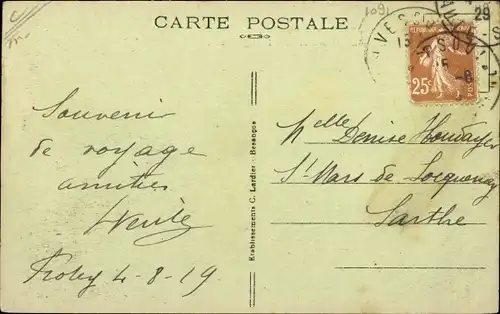 CARTE POSTALE
1601
29
25c
Souvenir
de voyage
amitiés
4-8-19
Etablissements C. Lardier - Besançon
Melle Denise
St Mars de Locquenay
Sarthe